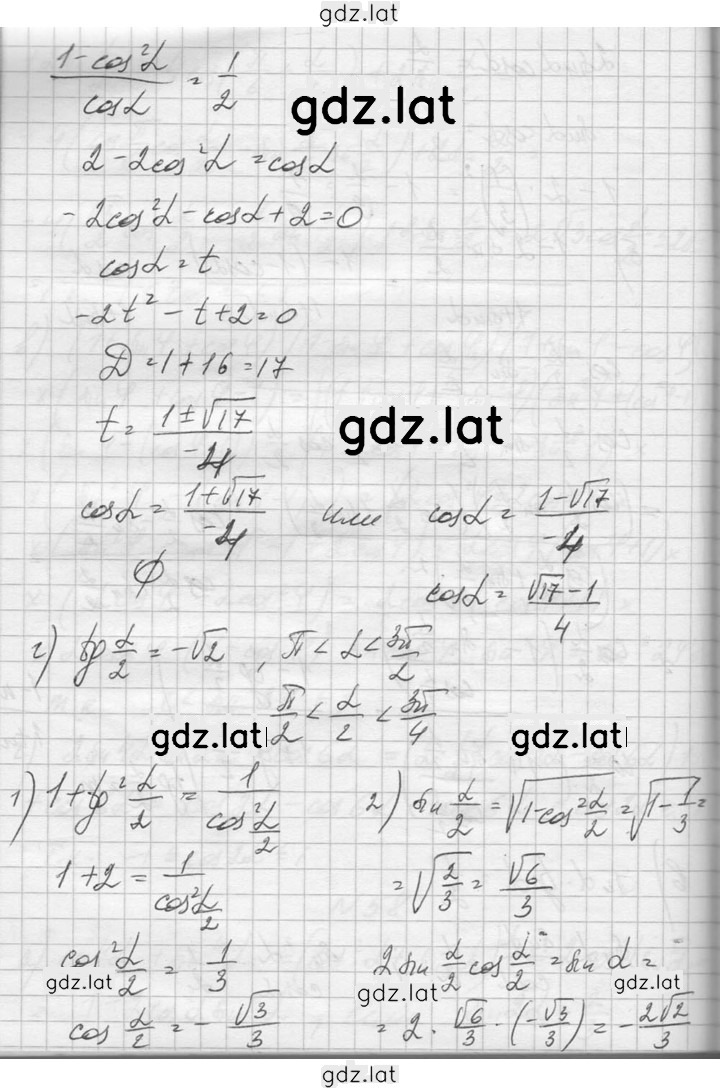 gdz.lat
(1-cos²α)/cosα = 1/2
gdz.lat
2-2cos²α = cosα
-2cos²α - cosα + 2 = 0
cosα = t
-2t² - t + 2 = 0
D = 1 + 16 = 17
t = (1±√17)/-4
gdz.lat
cosα = (1+√17)/-4 или cosα = (1-√17)/-4
∅
cosα = (√17-1)/4
г) tg α/2 = -√2 , π < α < 3π/2
π/2 < α/2 < 3π/4
gdz.lat gdz.lat
1) 1+tg² α/2 = 1/(cos² α/2)
1+2 = 1/(cos² α/2)
cos² α/2 = 1/3
gdz.lat
cos α/2 = -√3/3
2) sin α/2 = √(1-cos² α/2) = √(1-1/3) =
= √(2/3) = √6/3
2 sin α/2 cos α/2 = sin α =
gdz.lat gdz.lat
= 2·√6/3·(-√3/3) = -2√2/3
gdz.lat